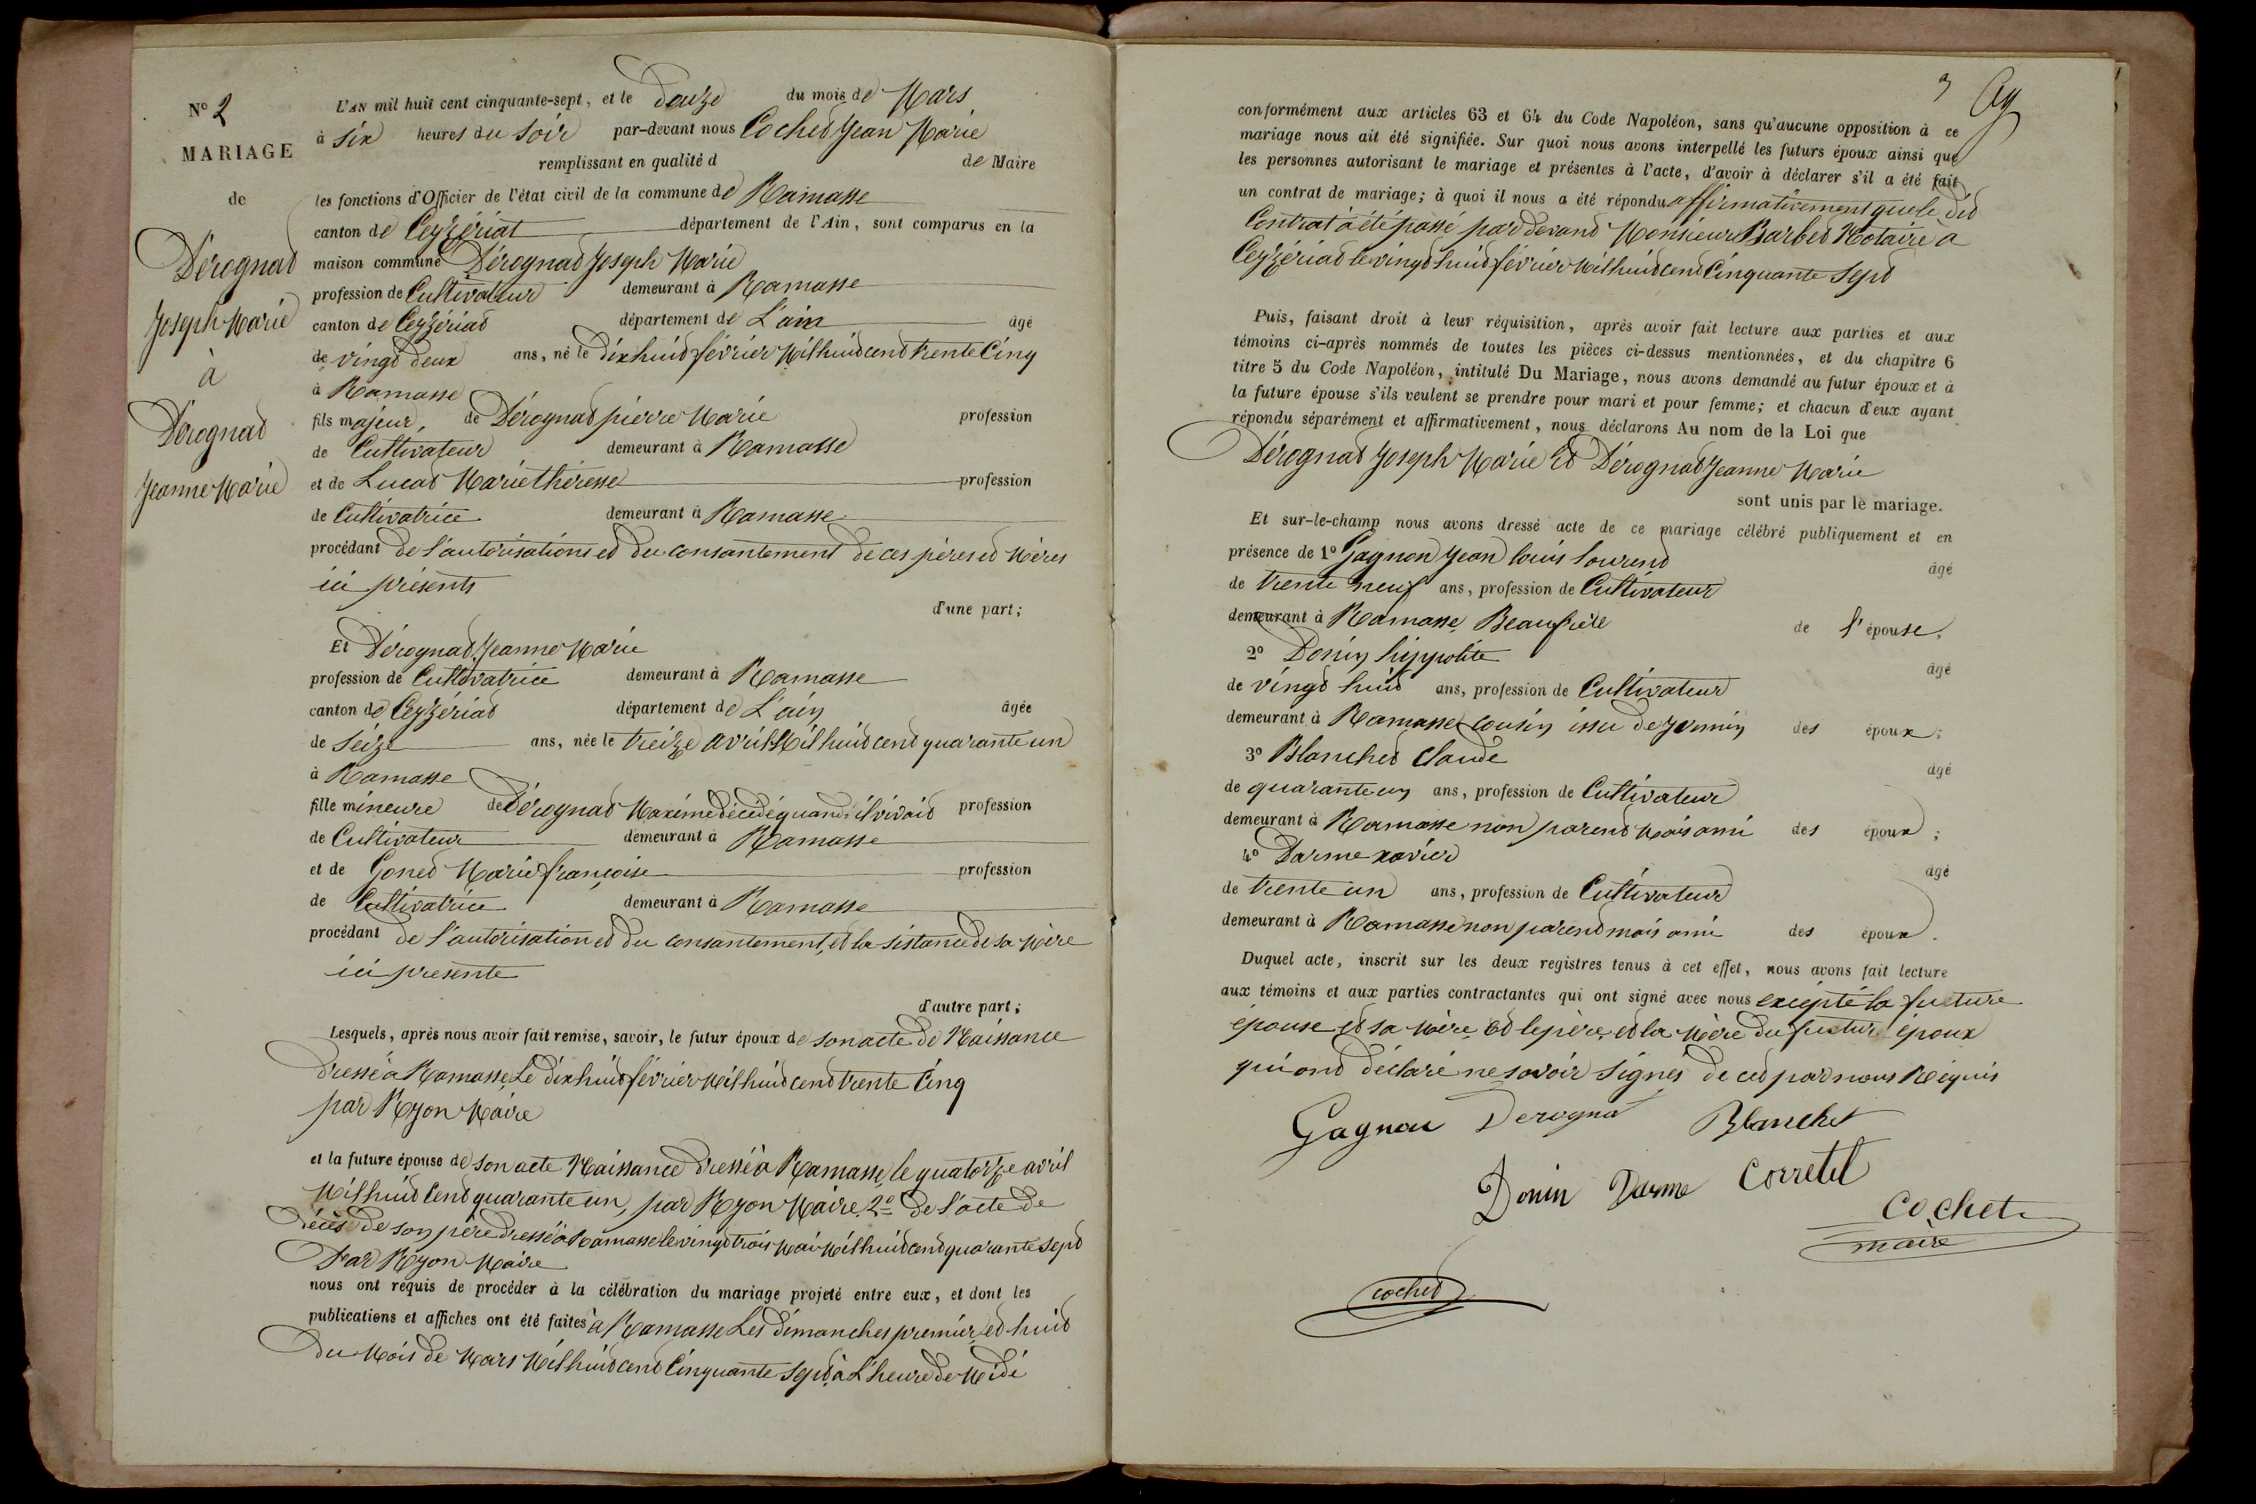 N° 2
MARIAGE
de
Dérognat
Joseph Marie
à
Dérognat
Jeanne Marie
L'AN mil huit cent cinquante-sept, et le douze du mois de Mars
à six heures du soir par-devant nous Cochet Jean Marie
remplissant en qualité d de Maire
les fonctions d'Officier de l'état civil de la commune de Ramasse
canton de Ceyzériat département de l'Ain, sont comparus en la
maison commune Dérognat Joseph Marie
profession de Cultivateur demeurant à Ramasse
canton de Ceyzériat département de L'ain âgé
de vingt deux ans, né le dix huit février Mil huit cent trente Cinq
à Ramasse
fils majeur, de Dérognat pierre Marie profession
de Cultivateur demeurant à Ramasse
et de Lucat Marie thérèsse profession
de Cultivatrice demeurant à Ramasse
procédant de l'autorisations et du consantement de ces pères et Mères
ici présents
d'une part;
Et Dérognat Jeanne Marie
profession de Cultivatrice demeurant à Ramasse
canton de Ceyzériat département de L'ain âgée
de seize ans, née le treize avril Mil huit cent quarante un
à Ramasse
fille mineure de Dérognat Maxime décédé quand il vivait profession
de Cultivateur demeurant à Ramasse
et de Gonet Marie françoise profession
de Cultivatrice demeurant à Ramasse
procédant de l'autorisation et du consantement, et la sistance de sa Mère
ici presente
d'autre part;
Lesquels, après nous avoir fait remise, savoir, le futur époux de son acte de Naissance
dressé à Ramasse Le dix huit février Mil huit cent trente Cinq
par Ryon Maire
et la future épouse de son acte Naissance dressé à Ramasse, le quatorze avril
Mil huit Cent quarante un, par Ryon Maire. 2° de l'acte de
décès de son père dressé à Ramasse le vingt trois Mai Mil huit cent quarante sept
Par Ryon Maire
nous ont requis de procéder à la célébration du mariage projeté entre eux, et dont les
publications et affiches ont été faites à Ramasse Les dimanches premier et huit
du Mois de Mars Mil huit cent Cinquante sept à L'heure de Midi
3
conformément aux articles 63 et 64 du Code Napoléon, sans qu'aucune opposition à ce
mariage nous ait été signifiée. Sur quoi nous avons interpellé les futurs époux ainsi que
les personnes autorisant le mariage et présentes à l'acte, d'avoir à déclarer s'il a été fait
un contrat de mariage; à quoi il nous a été répondu affirmativement que le dit
Contrat à été passé par devant Monsieur Barbet Notaire à
Ceyzériat le vingt huit février Mil huit cent Cinquante Sept
Puis, faisant droit à leur réquisition, après avoir fait lecture aux parties et aux
témoins ci-après nommés de toutes les pièces ci-dessus mentionnées, et du chapitre 6
titre 5 du Code Napoléon, intitulé Du Mariage, nous avons demandé au futur époux et à
la future épouse s'ils veulent se prendre pour mari et pour femme; et chacun d'eux ayant
répondu séparément et affirmativement, nous déclarons Au nom de la Loi que
Dérognat Joseph Marie Et Dérognat Jeanne Marie
sont unis par le mariage.
Et sur-le-champ nous avons dressé acte de ce mariage célébré publiquement et en
présence de 1° Gagnon Jean louis lourend âgé
de trente neuf ans, profession de Cultivateur
demeurant à Ramasse Beaufrère de l'épouse,
2° Donin hippolite âgé
de vingt huit ans, profession de Cultivateur
demeurant à Ramasse cousin issu de Jermin des époux;
3° Blanchet Claude âgé
de quarante un ans, profession de Cultivateur
demeurant à Ramasse non parent Mais ami des époux;
4° Darme xavier âgé
de trente un ans, profession de Cultivateur
demeurant à Ramasse non parent mais ami des époux.
Duquel acte, inscrit sur les deux registres tenus à cet effet, nous avons fait lecture
aux témoins et aux parties contractantes qui ont signé avec nous excépté la fucture
épouse et sa Mère et le père, et la Mère du fucture époux
qui ont déclaré ne savoir signés de ced par nous Réquis
Gagnon Derogna Blanchet
Donin Darme Corretel
Cochet
maire
Cochet